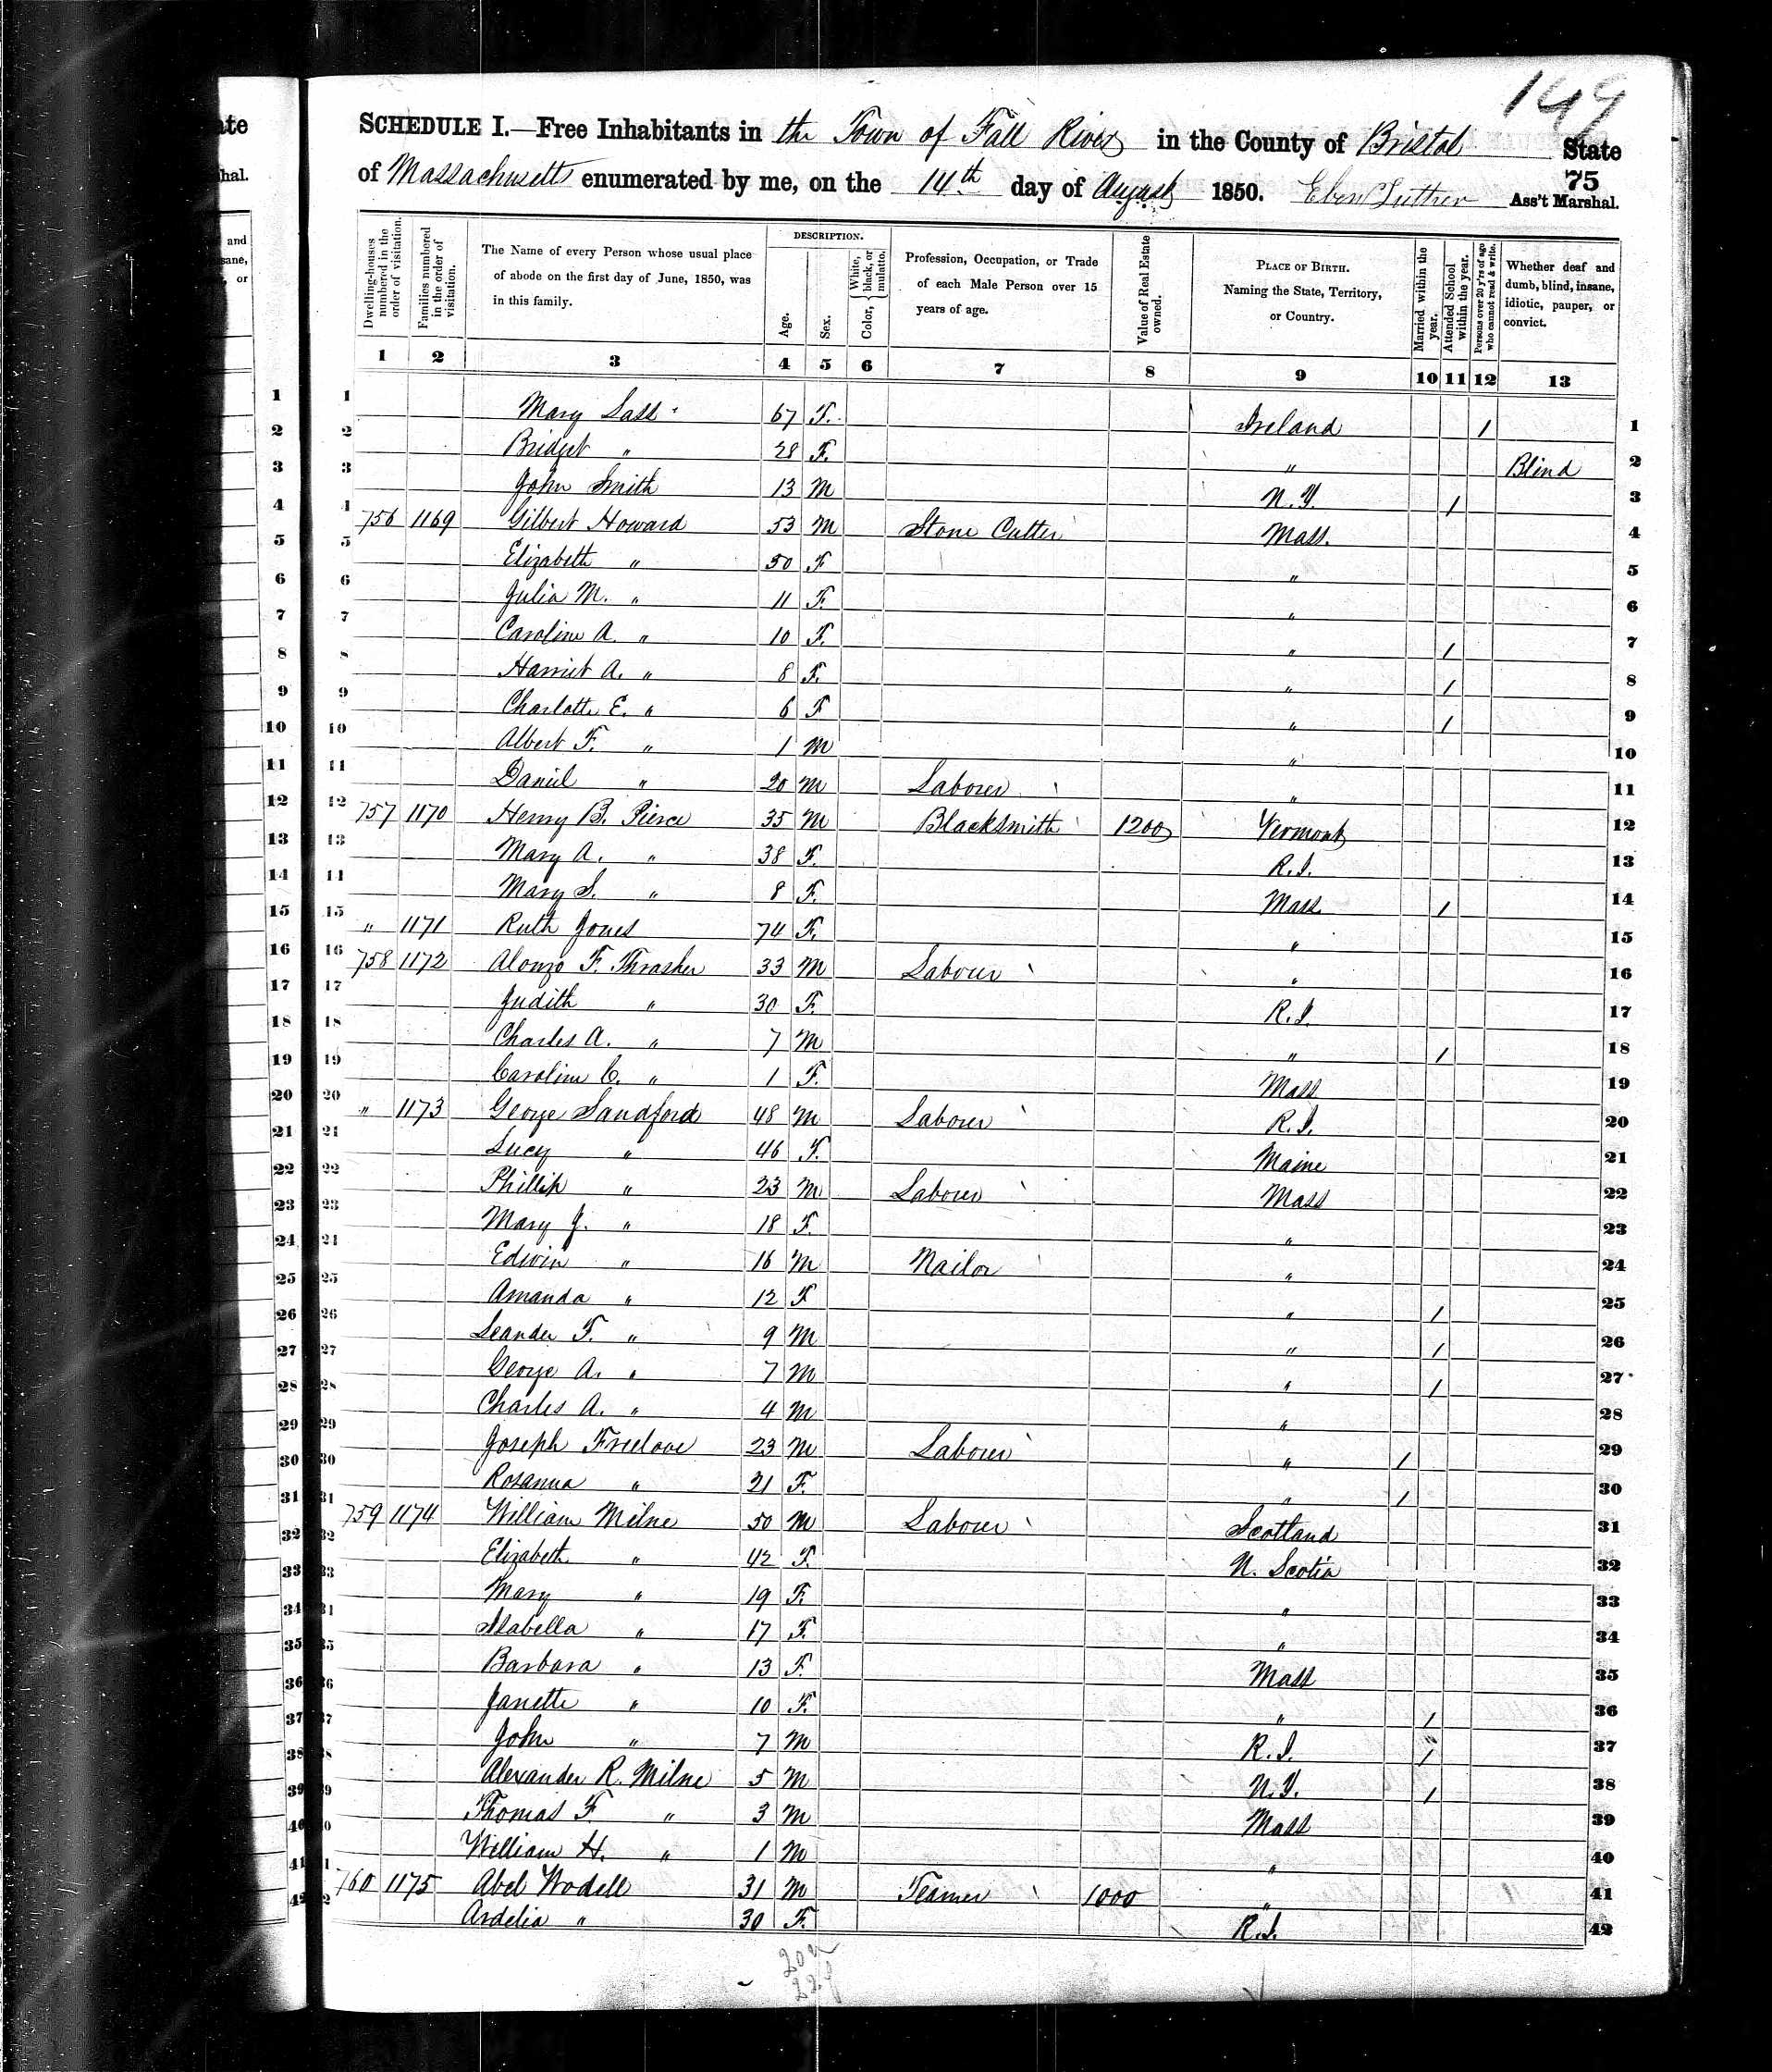 149
SCHEDULE I.—Free Inhabitants in the Town of Fall River in the County of Bristol State
of Massachusetts enumerated by me, on the 14th day of August 1850. Eben Luther Ass't Marshal.
75
Dwelling-houses numbered in the order of visitation.
Families numbered in the order of visitation.
The Name of every Person whose usual place of abode on the first day of June, 1850, was in this family.
DESCRIPTION.
Age.
Sex.
Color, { White, black, or mulatto.
Profession, Occupation, or Trade of each Male Person over 15 years of age.
Value of Real Estate owned.
PLACE OF BIRTH. Naming the State, Territory, or Country.
Married within the year.
Attended School within the year.
Persons over 20 y'rs of age who cannot read & write.
Whether deaf and dumb, blind, insane, idiotic, pauper, or convict.
1 2 3 4 5 6 7 8 9 10 11 12 13
1 Mary Lass 67 F. Ireland 1 1
2 Bridget " 28 F. " Blind 2
3 John Smith 13 M N.Y. 1 3
4 756 1169 Gilbert Howard 53 M Stone Cutter Mass. 4
5 Elizabeth " 50 F " 5
6 Julia M. " 11 F. " 6
7 Caroline A. " 10 F. " 1 7
8 Harriet A. " 8 F. " 1 8
9 Charlotte E. " 6 F " 1 9
10 Albert F. " 1 M " 10
11 Daniel " 20 M Labourer " 11
12 757 1170 Henry B. Pierce 35 M Blacksmith 1200 Vermont 12
13 Mary A. " 38 F. R.I. 13
14 Mary S. " 8 F. Mass. 1 14
15 " 1171 Ruth Jones 74 F. " 15
16 758 1172 Alonzo F. Thrasher 33 M Labourer " 16
17 Judith " 30 F. R.I. 17
18 Charles A. " 7 M " 1 18
19 Caroline C. " 1 F. Mass 19
20 " 1173 George Sandford 48 M Labourer R.I. 20
21 Lucy " 46 F. Maine 21
22 Phillip " 23 M Labourer Mass 22
23 Mary J. " 18 F. " 23
24 Edwin " 16 M Nailor " 24
25 Amanda " 12 F " 1 25
26 Leander F. " 9 M " 1 26
27 George A. " 7 M " 1 27
28 Charles A. " 4 M " 28
29 Joseph Freelove 23 M Labourer " 1 29
30 Rosanna " 21 F. " 1 30
31 759 1174 William Milne 50 M Labourer Scotland 31
32 Elizabeth " 42 F. N. Scotia 32
33 Mary " 19 F. " 33
34 Isabella " 17 F. " 34
35 Barbara " 13 F. Mass 35
36 Janette " 10 F. " 1 36
37 John " 7 M R.I. 1 37
38 Alexander R. Milne 5 M N.Y. 1 38
39 Thomas F. " 3 M Mass 39
40 William H. " 1 M " 40
41 760 1175 Abel Wodell 31 M Teamer 1000 " 41
42 Ardelia " 30 F. R.I. 42